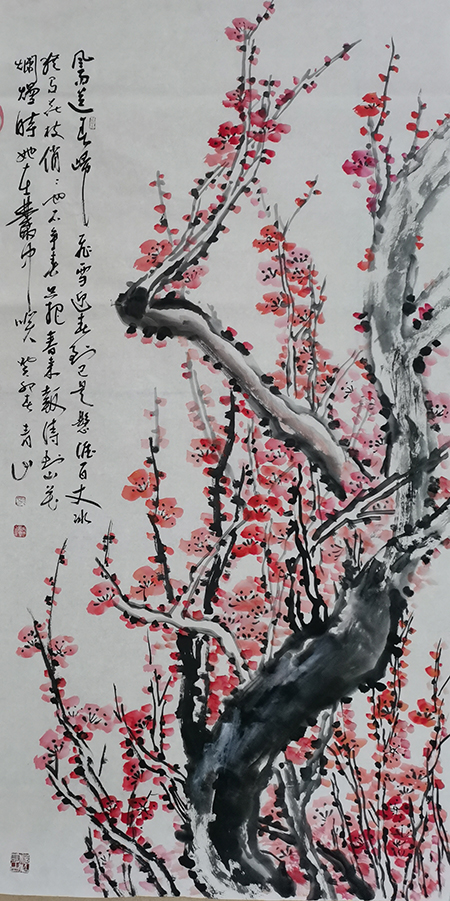 風雨送春歸飛雪迎春到已是懸崖百丈冰
猶有花枝俏〻也不争春只把春来報待到山花
爛熳時她在叢中笑 癸卯 青山